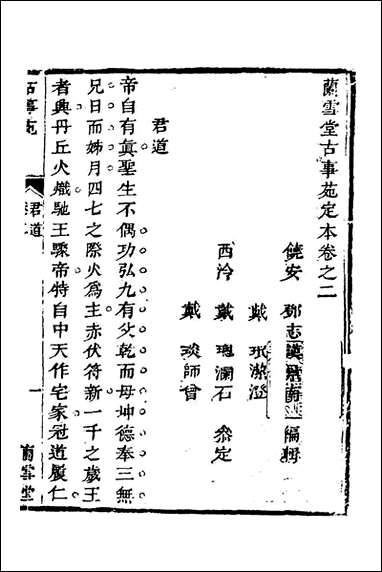 蘭雪堂古事苑定本卷之二
饒安 鄧志謨景南 編輯
戴 珉潔澄
西泠 戴 璁瀾石 叅定
戴 琰師曾
君道
帝自有眞聖生不偶功弘九有父乾而母坤德奉三無
兄日而姊月四七之際火爲主赤伏符新一千之歲王
者興丹丘火熾馳王驟帝特自中天作宅家冠道履仁
古事苑
君道
一
蘭雪堂